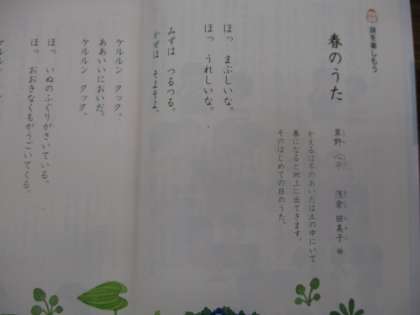 詩を楽しもう
春のうた
草野 心平
浅倉 田美子 絵
かえるは冬のあいだは土の中にいて
春になると地上に出てきます。
そのはじめての日のうた。
ほっ まぶしいな。
ほっ うれしいな。
みずは つるつる。
かぜは そよそよ。
ケルルン クック。
ああいいにおいだ。
ケルルン クック。
ほっ いぬのふぐりがさいている。
ほっ おおきなくもがうごいてくる。
ケルルン